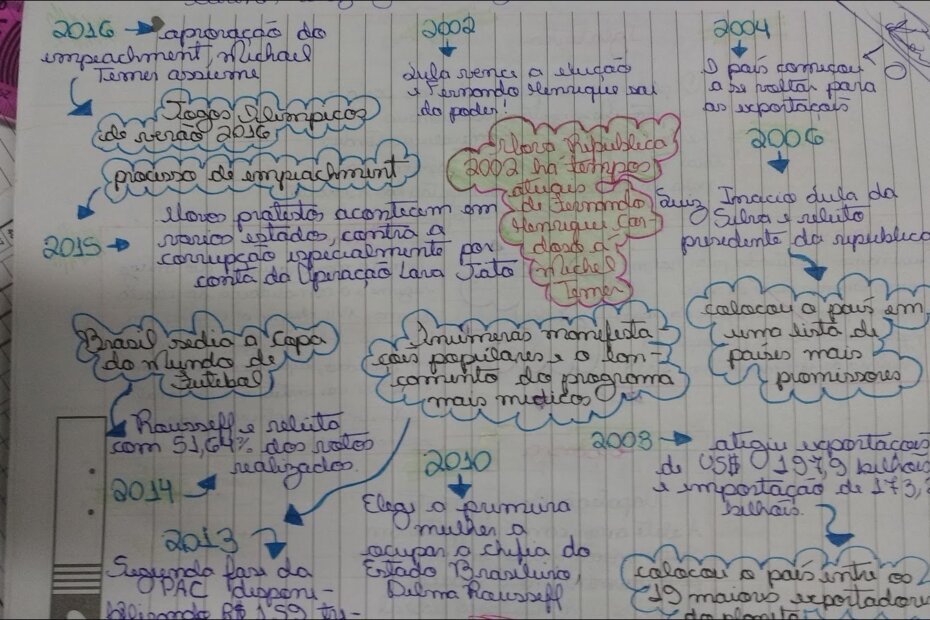 2016 → aprovação do
impeachment, Michael
Temer assume
Jogos Olimpicos
de verão 2016
processo de impeachment
2015 → Novos protestos acontecem em
varios estados, contra a
corrupção especialmente por
conta da Operação Lava Jato
Brasil sedia a Copa
do Mundo de
Futebol
Rousseff e releita
com 51,64% dos votos
realizados
2014 →
2013
Segunda fase da
PAC disponi-
R$ 1,59 tri-
2002
Lula vence a eleição
e Fernando Henrique sai
do poder!
Nova Republica
2002 há tempos
atuais
de Fernando
Henrique Car
doso á
Michel
Temer
Inúmeras manifesta
çois populares e o lan-
çamento do programa
mais medicos
2010
Elege a primeira
mulher a
ocupar a chefia do
Estado Brasileiro,
Dilma Rousseff
2004
O país começou
a se voltar para
as exportaçois
2006
Luiz Inacio Lula da
Silva e releito
presidente da republica
colocou o país em
uma lista de
países mais
promissores
2008 → atigiu exportaçois
de US$ 197,9 bilhois
e importação de 173,
bilhois.
colocou o país entre os
19 maiores exportadores
do planeta